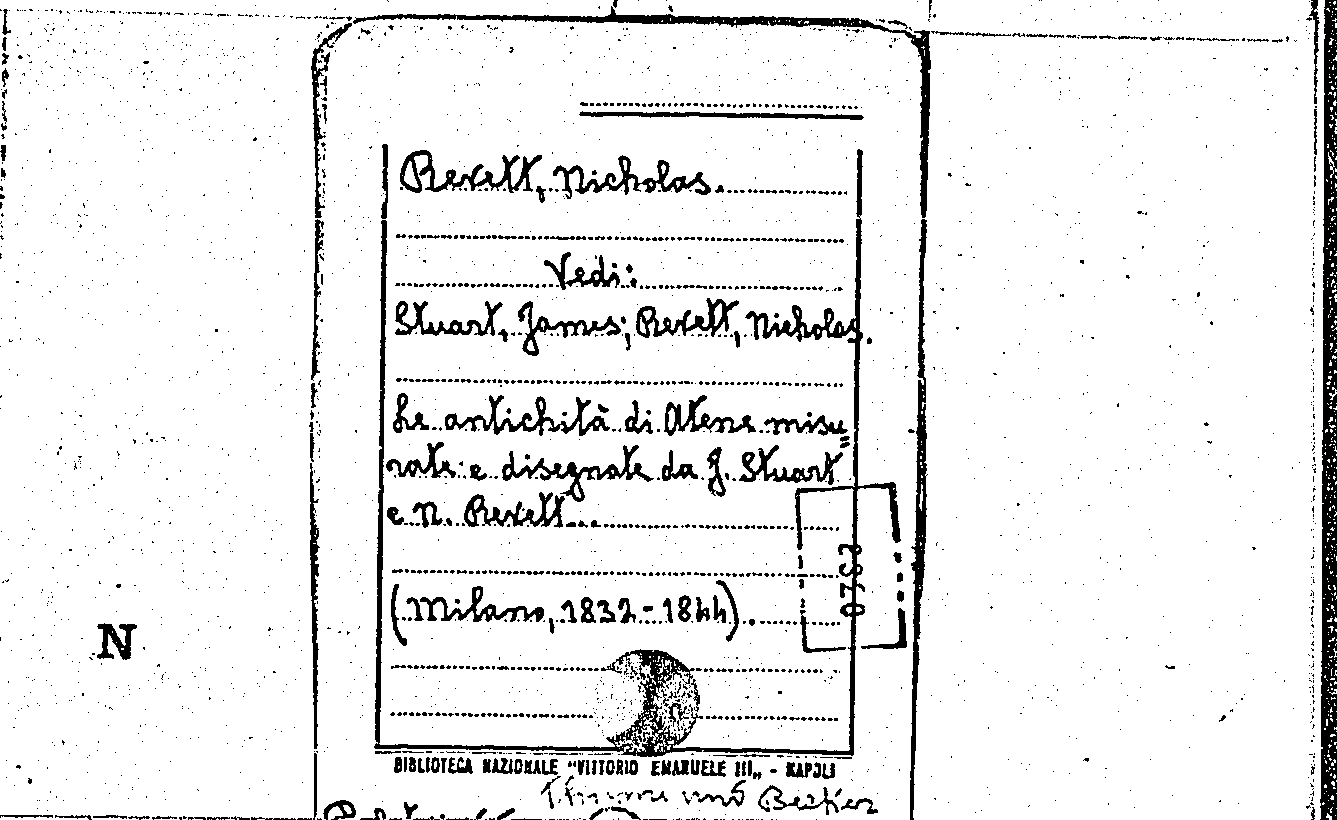 Revett, Nicholas.
Vedi:
Stuart, James; Revett, Nicholas.
Le antichità di Atene misu=
rate e disegnate da J. Stuart
e N. Revett...
(Milano, 1832-1844).
N
BIBLIOTECA NAZIONALE "VITTORIO EMANUELE III„ - NAPOLI
und